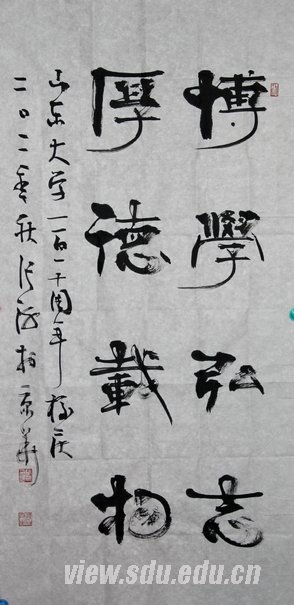 博學弘志
厚德載物
山东大学一百一十周年校庆
二〇一一年秋 海 于京华
view.sdu.edu.cn